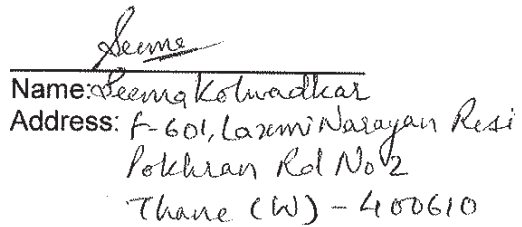 Seema
Name: Seema Kolwadkar
Address: F-601, Laxmi Narayan Resi
Pokhran Rd No 2
Thane (W) - 400610